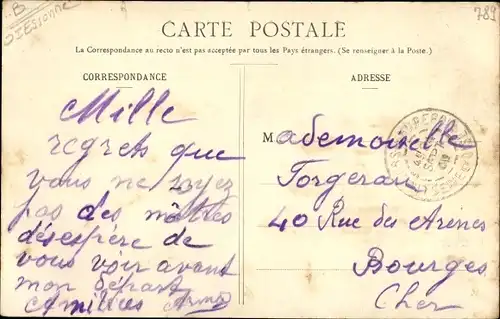 B
Essonne
789
CARTE POSTALE
La Correspondance au recto n'est pas acceptée par tous les Pays étrangers. (Se renseigner à la Poste.)
CORRESPONDANCE
Mille
regrets que
vous ne soyez
pas des nôtres
désespère de
vous voir avant
mon départ
amitiés
ADRESSE
Mademoiselle
Torgerau
40 Rue des Arènes
Bourges
Cher